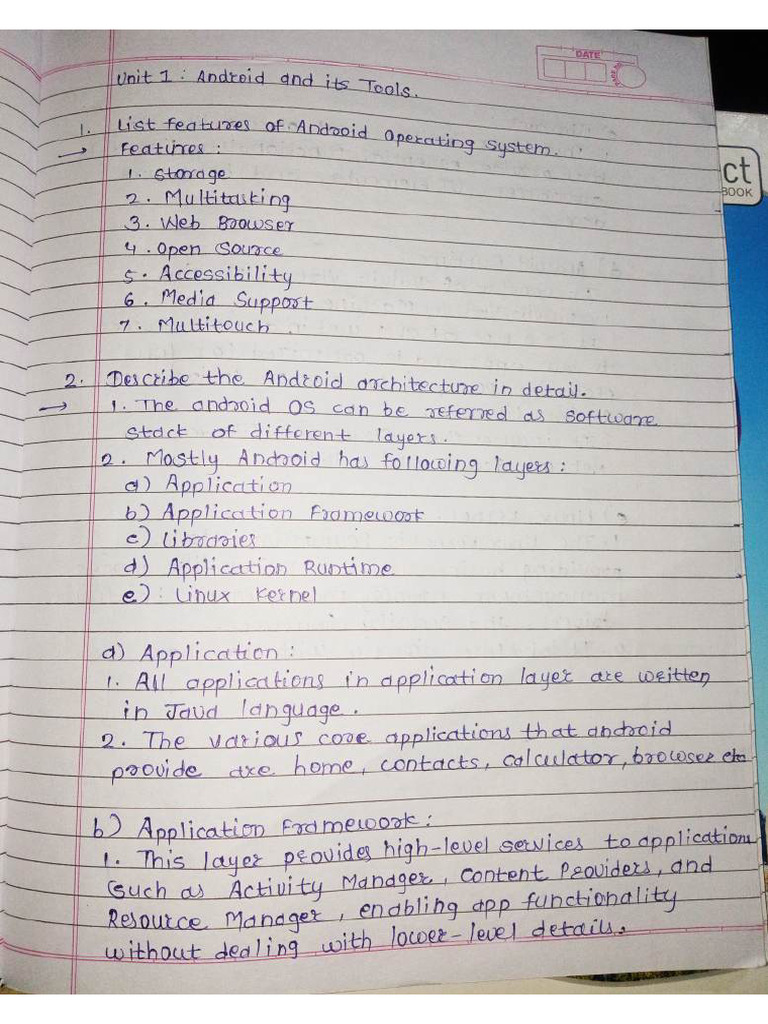 DATE
Unit 1 : Android and its Tools.
1. List features of Android Operating system.
→ Features :
1. Storage
2. Multitasking
3. Web Browser
4. Open Source
5. Accessibility
6. Media Support
7. Multitouch
2. Describe the Android architecture in detail.
→ 1. The android OS can be referred as software
stack of different layers.
2. Mostly Android has following layers :
a) Application
b) Application Framework
c) Libraries
d) Application Runtime
e) : Linux Kernel
a) Application :
1. All applications in application layer are written
in Java language.
2. The various core applications that android
provide are home, contacts, calculator, browser etc
b) Application Framework :
1. This layer provides high-level services to applications
such as Activity Manager, Content Providers, and
Resource Manager, enabling app functionality
without dealing with lower-level details.
ct
BOOK